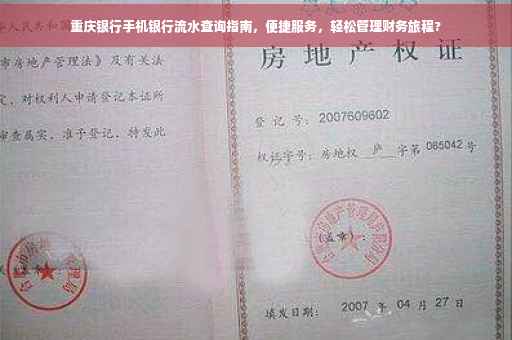 重庆银行手机银行流水查询指南，便捷服务，轻松管理财务旅程？
华人民共和国
市房地产管理法》及有关法
定，对权利人申请登记本证所
审查属实，准予登记，特发此
房地产权证
登记号：2007609602
权证字号：房地权 庐 字第 065042 号
(盖章)：
填发日期：2007 年 04 月 27 日